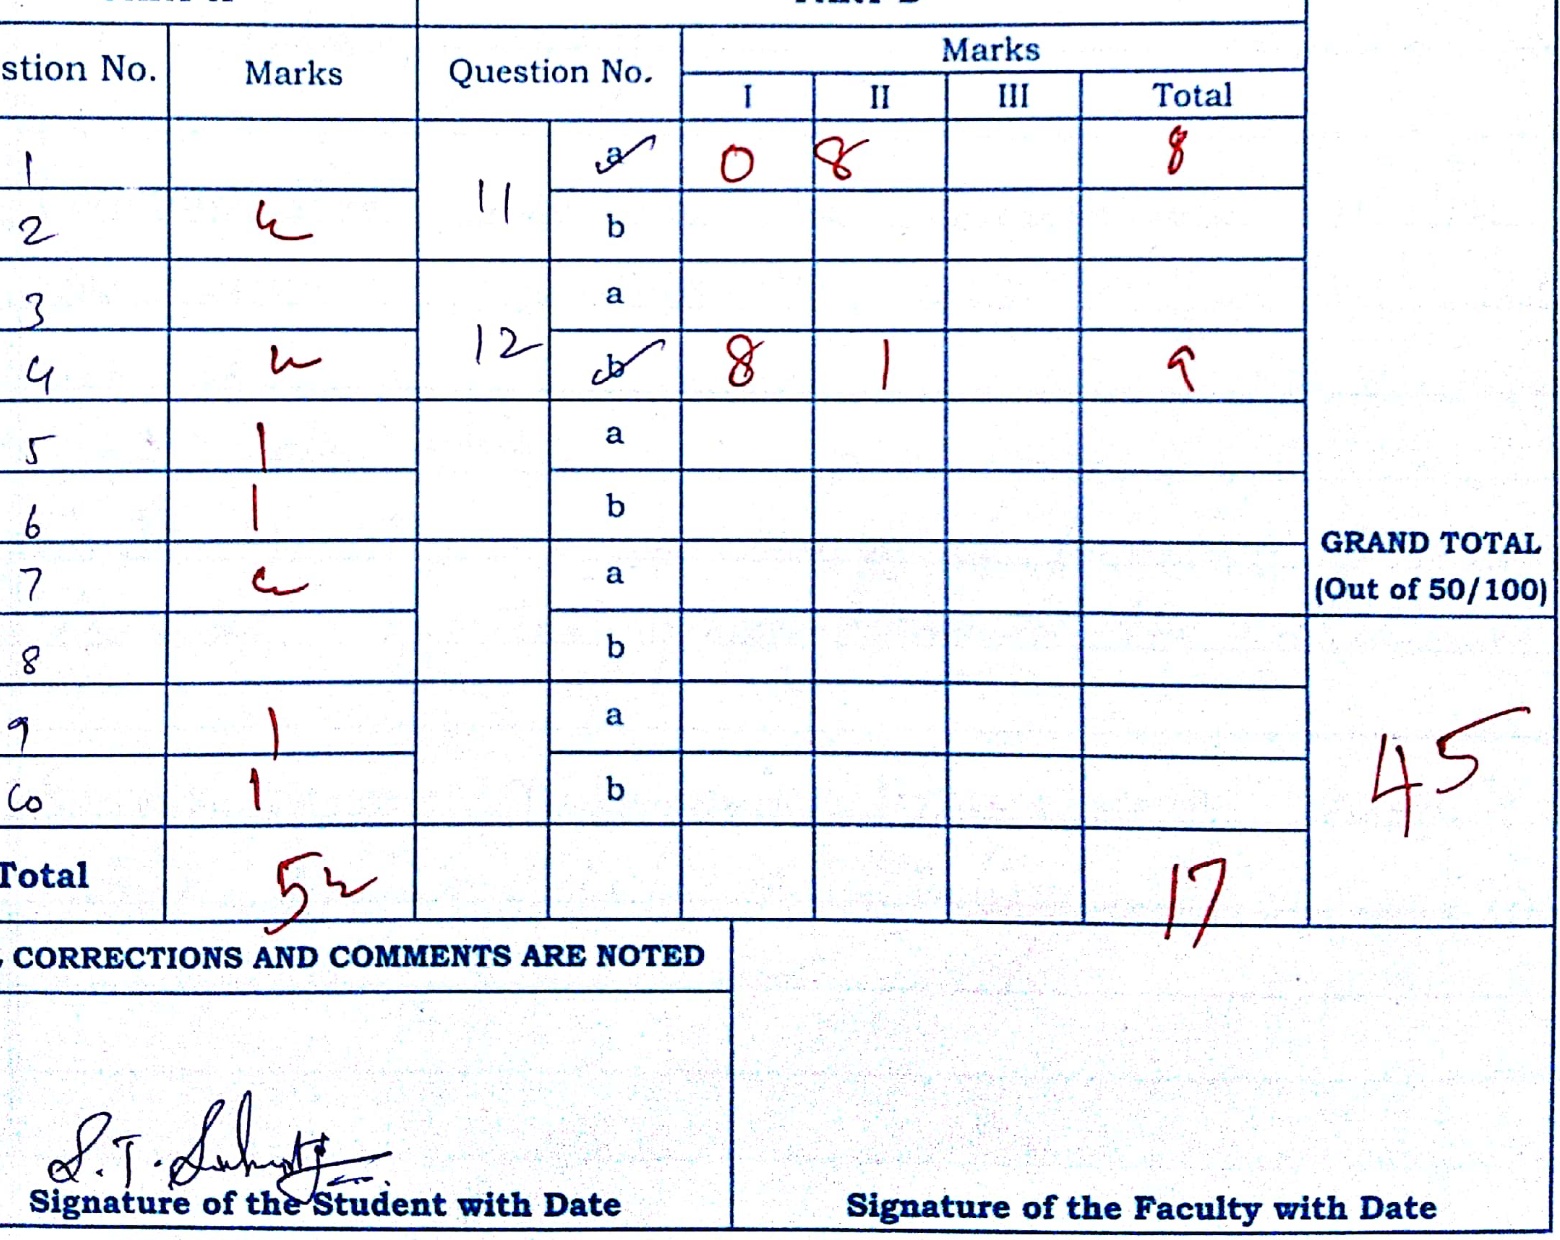 stion No. Marks Question No. Marks
I II III Total
1 11 a 0 8 8
2 b
3 12 a
4 b 8 1 9
5 1 a
6 1 b
7 a
8 b
9 1 a
10 1 b
GRAND TOTAL
(Out of 50/100)
45
Total 17
CORRECTIONS AND COMMENTS ARE NOTED
S.T.
Signature of the Student with Date Signature of the Faculty with Date